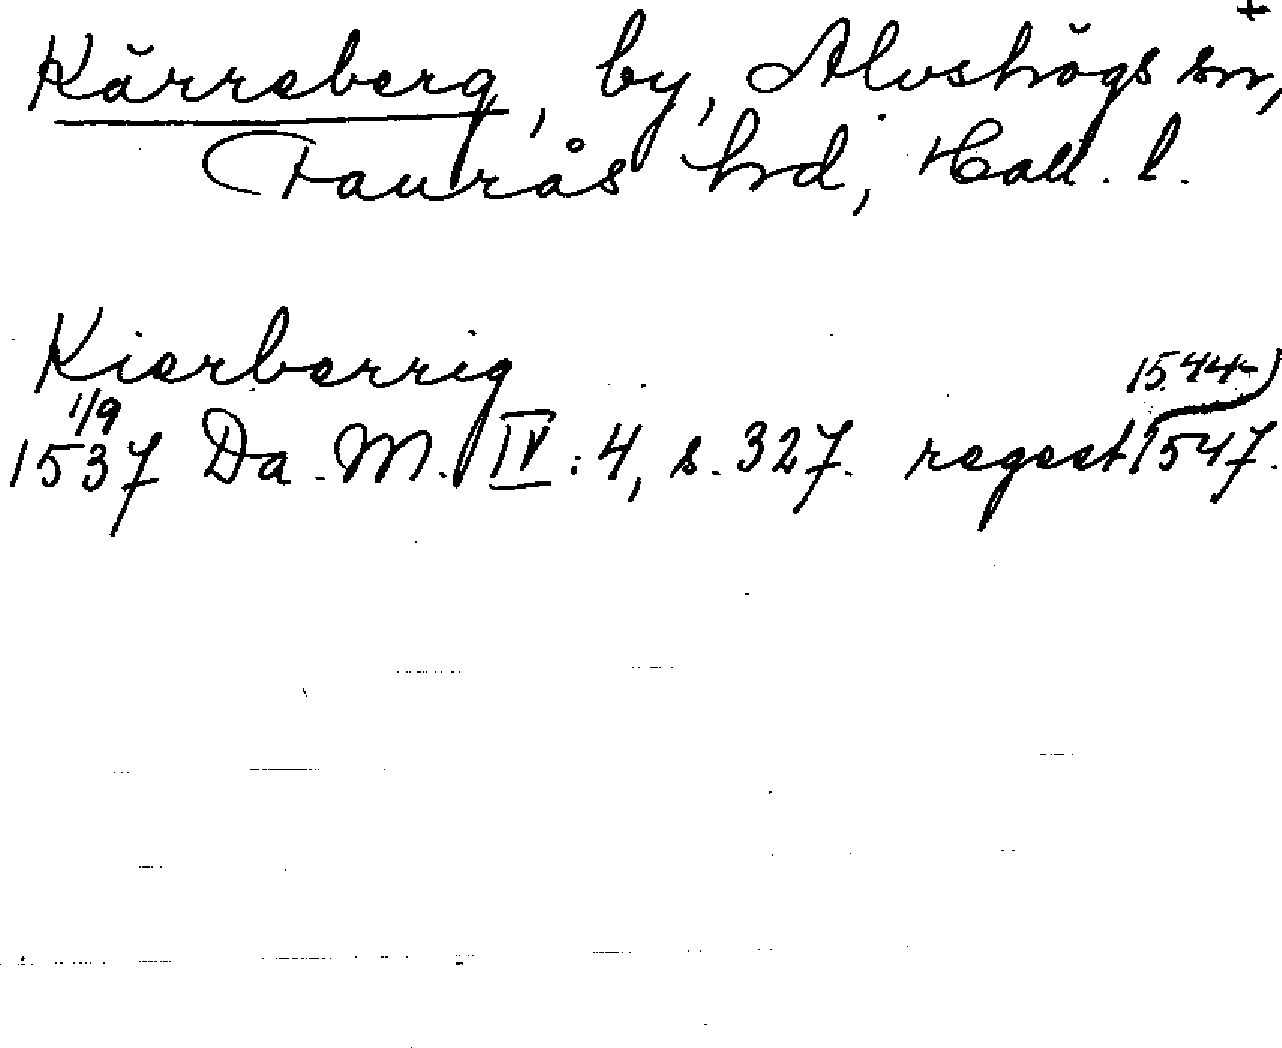 +
Kärreberg, by, Alvshögs sn,
Faurås hrd, Hall. l.
Kierberrig
1/9 1544-)
1537 Da. M. IV: 4, s. 327. regest 1547.